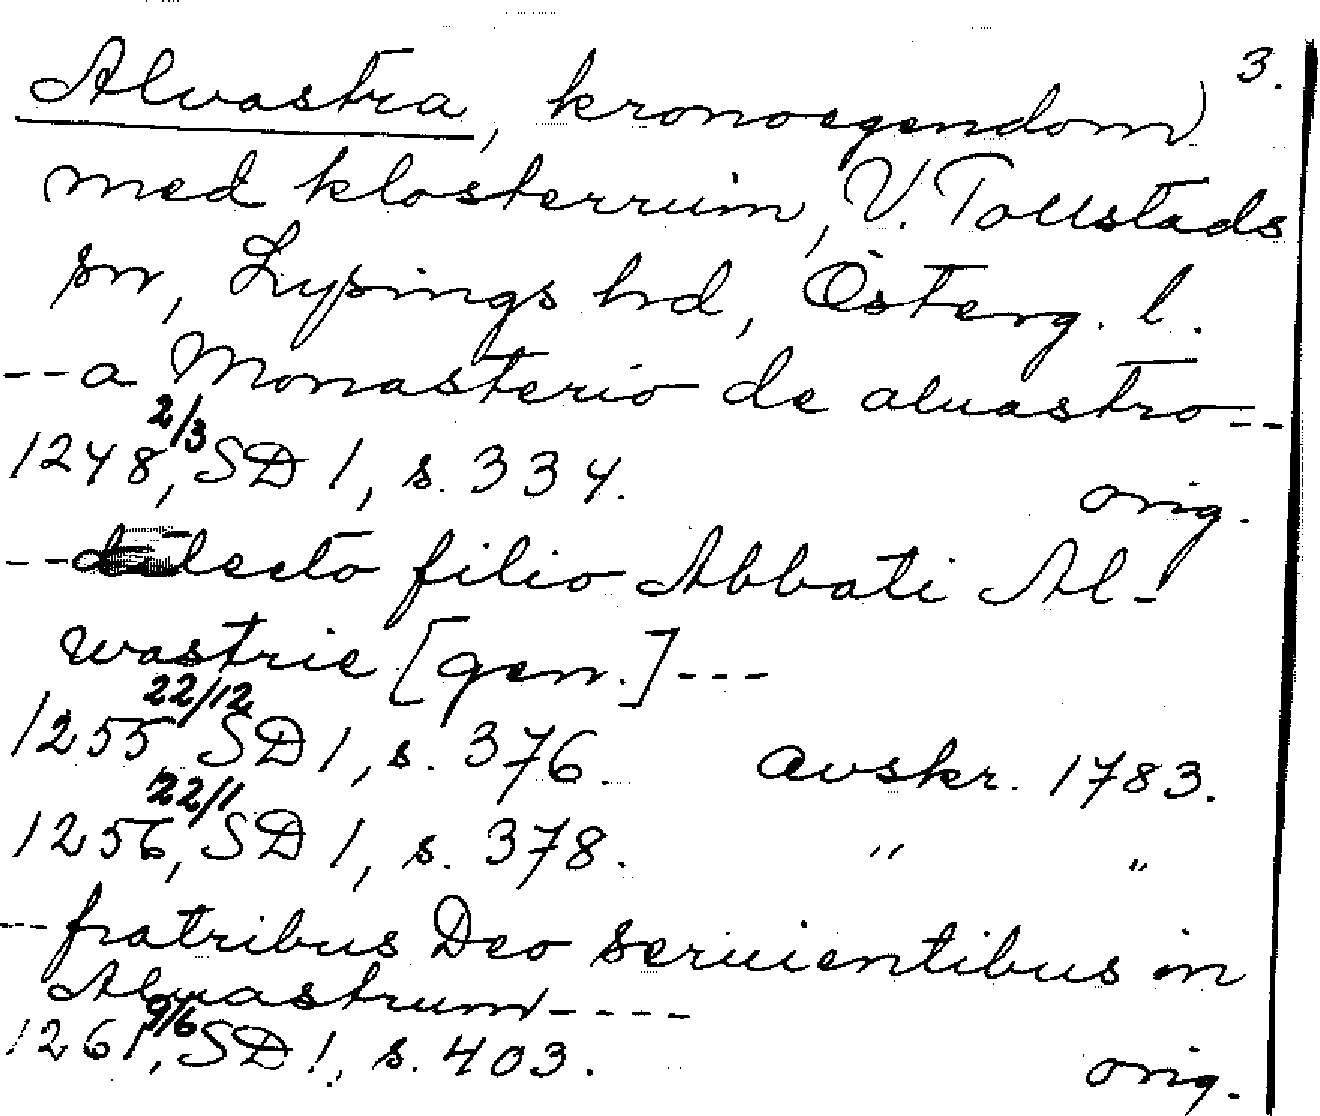 3.
Alvastra, kronoegendom
med klosterruin, V. Tollstads
sn, Lysings hd, Österg. l.
--a Monasterio de aluastro--
1248 2/3, SD 1, s. 334. orig.
--dilecto filio Abbati Al-
wastrie [gen.]---
1255 22/12 SD 1, s. 376. avskr. 1783.
1256 22/1, SD 1, s. 378. " "
--fratribus Deo seruientibus in
Aluastrum----
1261 9/6, SD 1, s. 403. orig.